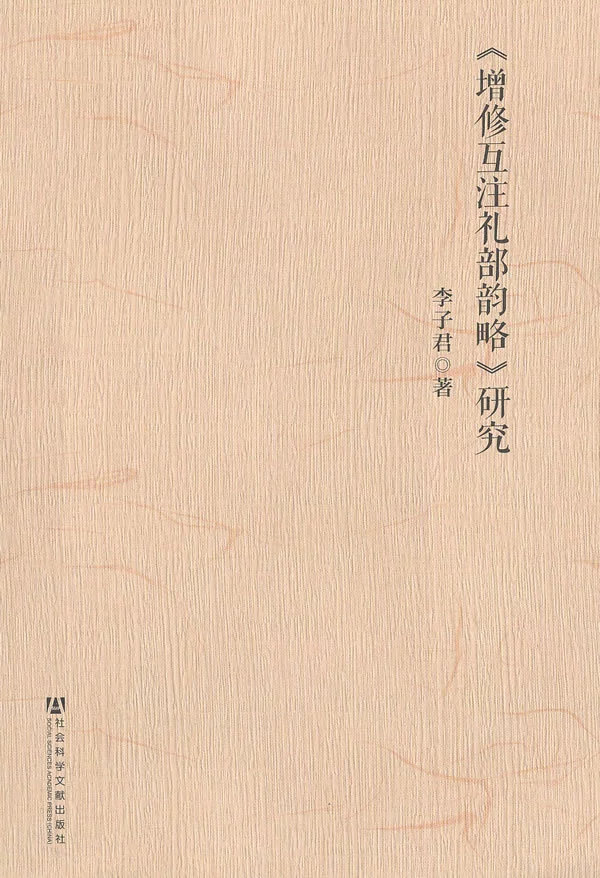 《增修互注礼部韵略》研究
李子君◎著
社会科学文献出版社
SOCIAL SCIENCES ACADEMIC PRESS (CHINA)